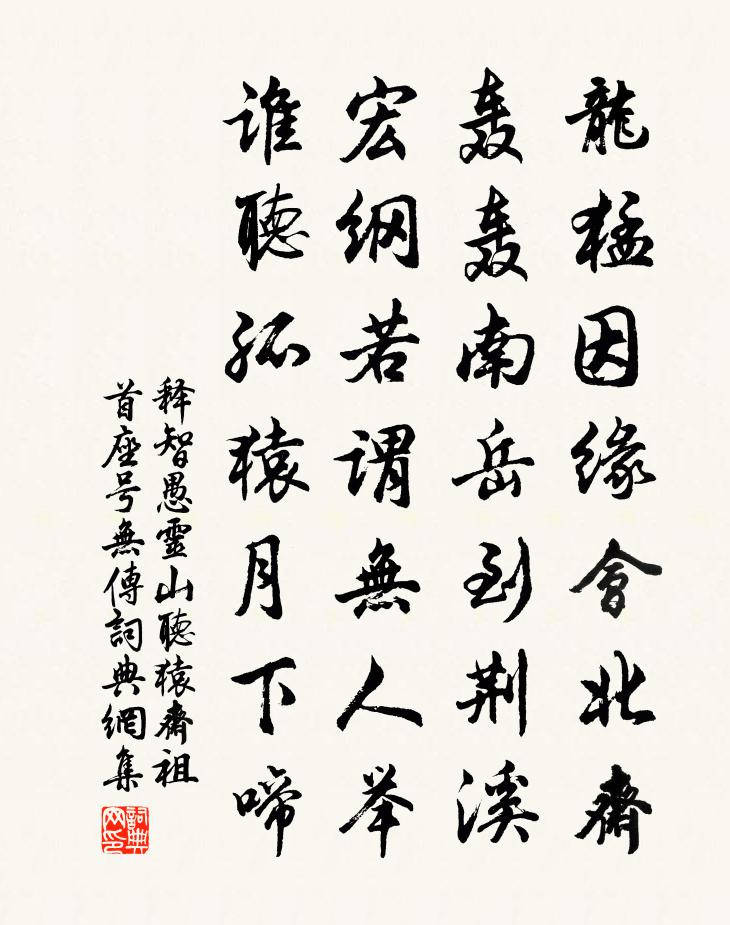 龍猛因缘會北齋
轰轰南岳到荆溪
宏纲若谓無人举
谁聽孤猿月下啼
释智愚靈山聽猿齋祖
首座号無傳詞典網集
詞典网印